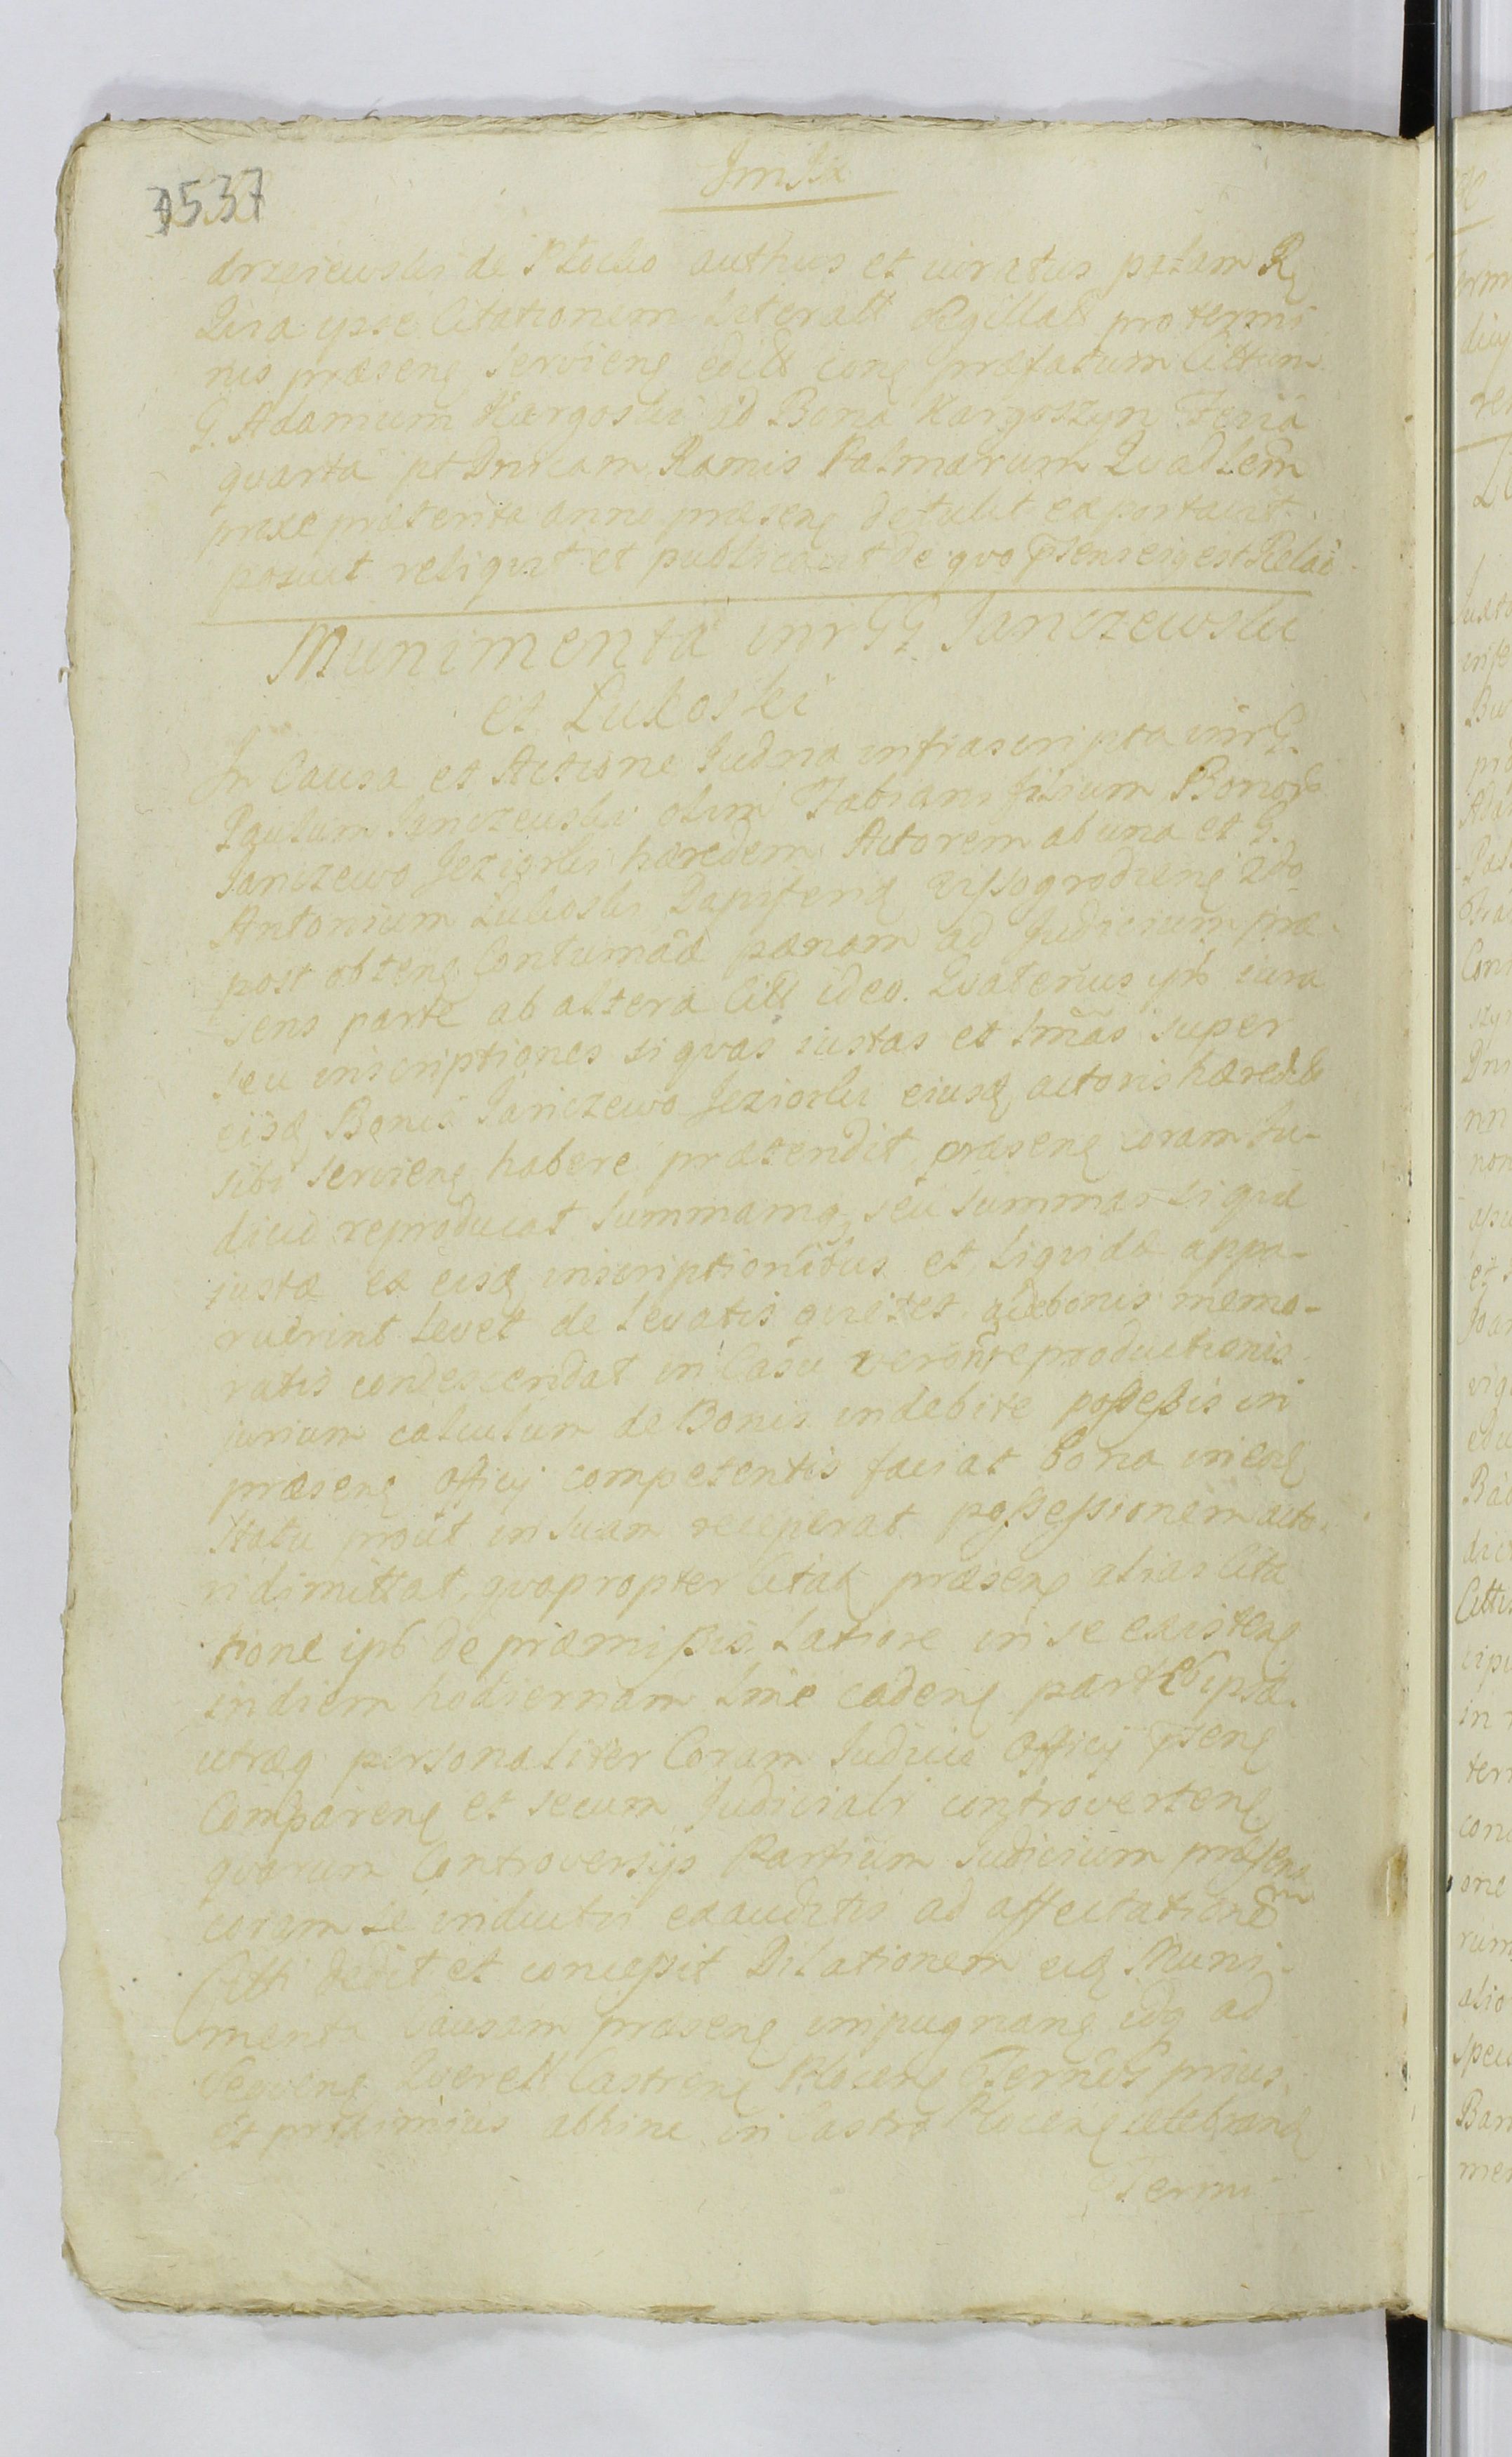 3537
drzeiewski de Plocko authus et iuratus palam R
Quia ipse Citationem Literall Sigillatt pro termi
nis præsenę servienę editt conę præfatum Cittum
G. Adamum Kargoski ad Bona Kargoszyn Feria
quarta pt Dnicam Ramis Palmarum Quadlem
proxe præterita anni præsenę detulit exportavit
posuit reliquit et publicavit de quo psens eig est Relão
Munimenta intr GG Janczewski
et Lukoski
In Causa et Actione Iudria infrascripta intr G.
Paulum Janczewski olim Fabiani filium Bonor
Janczewo Jeziorki hæredem Actorem ab una et G.
Antonium Lukoski Dapiferid Vissogrodienę 2do
post obtenę Contumãæ pænam ad Iudicium præ
sens parte ab altera Citt ideo. Quatenus ipb iura
seu inscriptiones si quas iustas et lmãs super
eisd Bonis Janczewo Jeziorki eiusd actoris hæredit
sibi servienę habere prætendit præsenę coram Iu-
dicio reproducat Summamq seu summas si quæ
iustæ ex eisd inscriptionibus et liquidæ appa-
ruerint levet de levatis quietet de bonis memo-
ratis condescendat in Casu vero nreproductionis
iurium calculum de Bonis indebite possessis in
præsenę officij competentis faciat bona in eod
statu prout in suam receperat possessionem acto
ri dimittat, quapropter Citatę præsenę alias Cita
tione ipb de præmissis Latiore in se existenę
in diem hodiernam lme cadenę partibus ipsæ
utræq personaliter Coram Iudicio Officij psenę
Comparenę et secum Iudicialr controvertenę
quarum Controversijs Partium Iudicium præsens
coram se inductis exauditis ad affectationem
Citti dedit et concessit Dilationem eid Muni-
menta Causam præsenę impugnanę idq ad
Querell Castrenę Plocenę Terminos prius
et proximius abhinc in Castro Plocenę celebrand
Termi